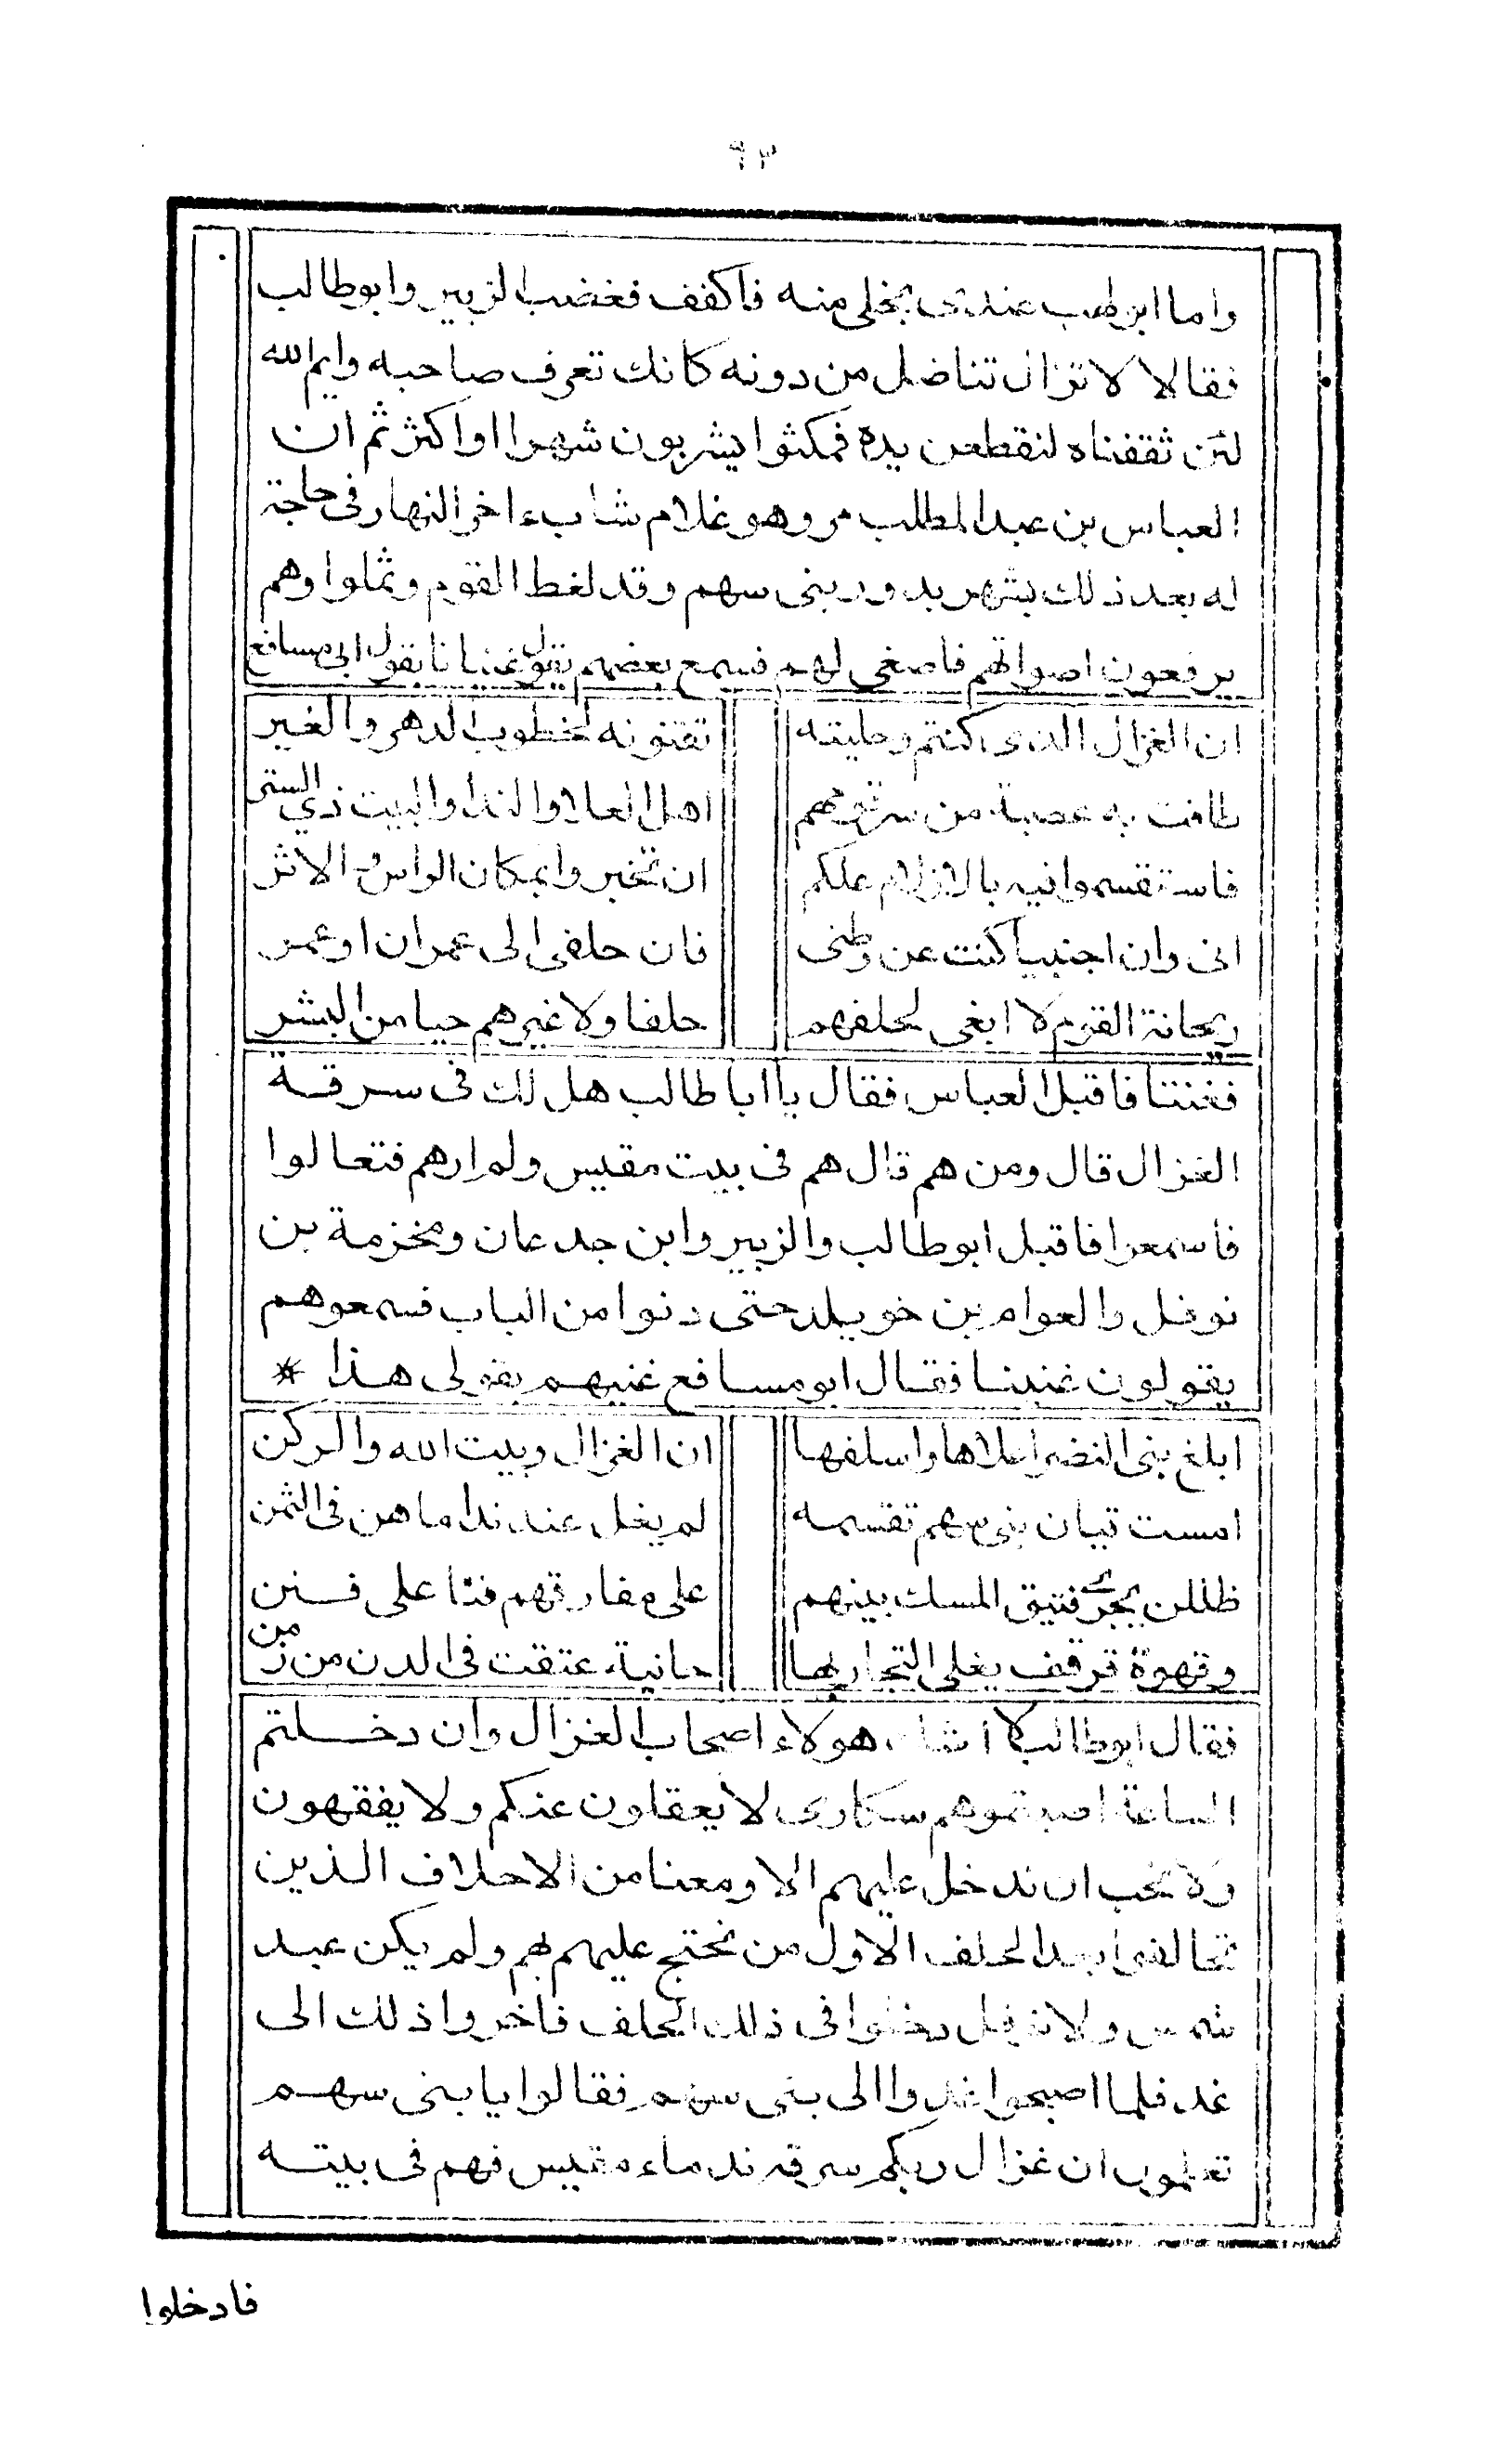 ٩٣
واما ابو لهب عندى بخلى منه فاكفف فغضب الزبير وابوطالب
فقالا لا تزال تناضل من دونه كانك تعرف صاحبه وايم الله
لئن ثقفناه لنقطعن يده فمكثوا يشربون شهرا اواكثر ثم ان
العباس بن عبد المطلب مر وهو غلام شاب ءاخر النهار فى حاجة
له بعد ذلك بشهر بدور بنى سهم وقد لغط القوم وثملوا وهم
يرفعون اصواتهم فاصغى لهم فسمع بعضهم يقول غنيانا بقول ابى مسافع
ان الغزال الذى كنتم وحليته
تقتنونه لخطوب الدهر والغير
طافت به عصبة من سر قومهم
اهل العلا والندا والبيت ذي الستر
فاستقسموا فيه بالازلام علكم
ان تخبروا بمكان الراس والاثر
انى وان اجنبيا كنت عن وطنى
فان حلفى الى عمران او عمر
ريحانة القوم لا ابغى لحلفهم
حلفا ولا غيرهم حيا من البشر
فغنتا فاقبل العباس فقال يا ابا طالب هل لك فى سرقة
الغزال قال ومن هم قال هم فى بيت مقيس ولم ارهم فتعالوا
فاسمعوا فاقبل ابوطالب والزبير وابن جدعان ومخزمة بن
نوفل والعوام بن خويلد حتى دنوا من الباب فسمعوهم
يقولون غنينا فقال ابو مسافع غنيهم بقولى هذا *
ابلغ بنى النضر اعلاها واسلفها
ان الغزال وبيت الله والركن
امست قيان بنى سهم تقسمه
لم يغل عند نداماهن فى الثمن
ظللن يجرى فتيق المسك بينهم
على مفارقهم فنا على فنن
وقهوة قرقف يغلى التجار بها
حانية عتقت فى الدن من زمن
فقال ابوطالب لا شك هولاء اصحاب الغزال وان دخلتم
الساعة اصبتموهم سكارى لا يعقلون عنكم ولا يفقهون
ولا نحب ان ندخل عليهم الا ومعنا من الاحلاف الذين
تحالفوا بعد الحلف الاول من نحتج عليهم بهم ولم يكن عبد
شمس ولا نوفل دخلوا فى ذلك الحلف فاخروا ذلك الى
غد فلما اصبحوا غدوا الى بنى سهم فقالوا يا بنى سهم
تعلمون ان غزال ربكم سرقه ندماء مقيس فهم فى بيته
فادخلوا